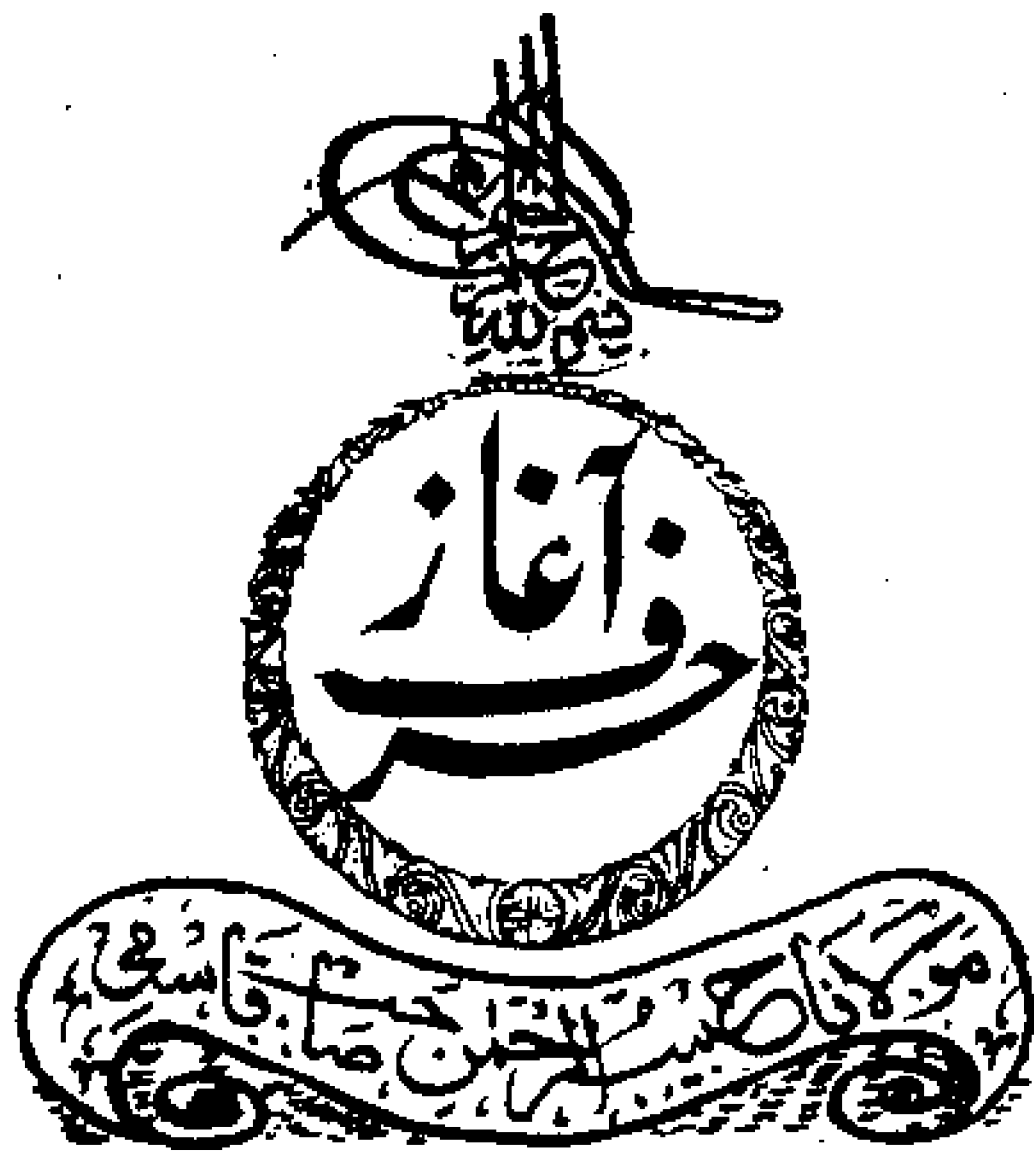 بسم الله الرحمن الرحيم
حرف آغاز
مولانا حبیب الرحمن صاحب قاسمی